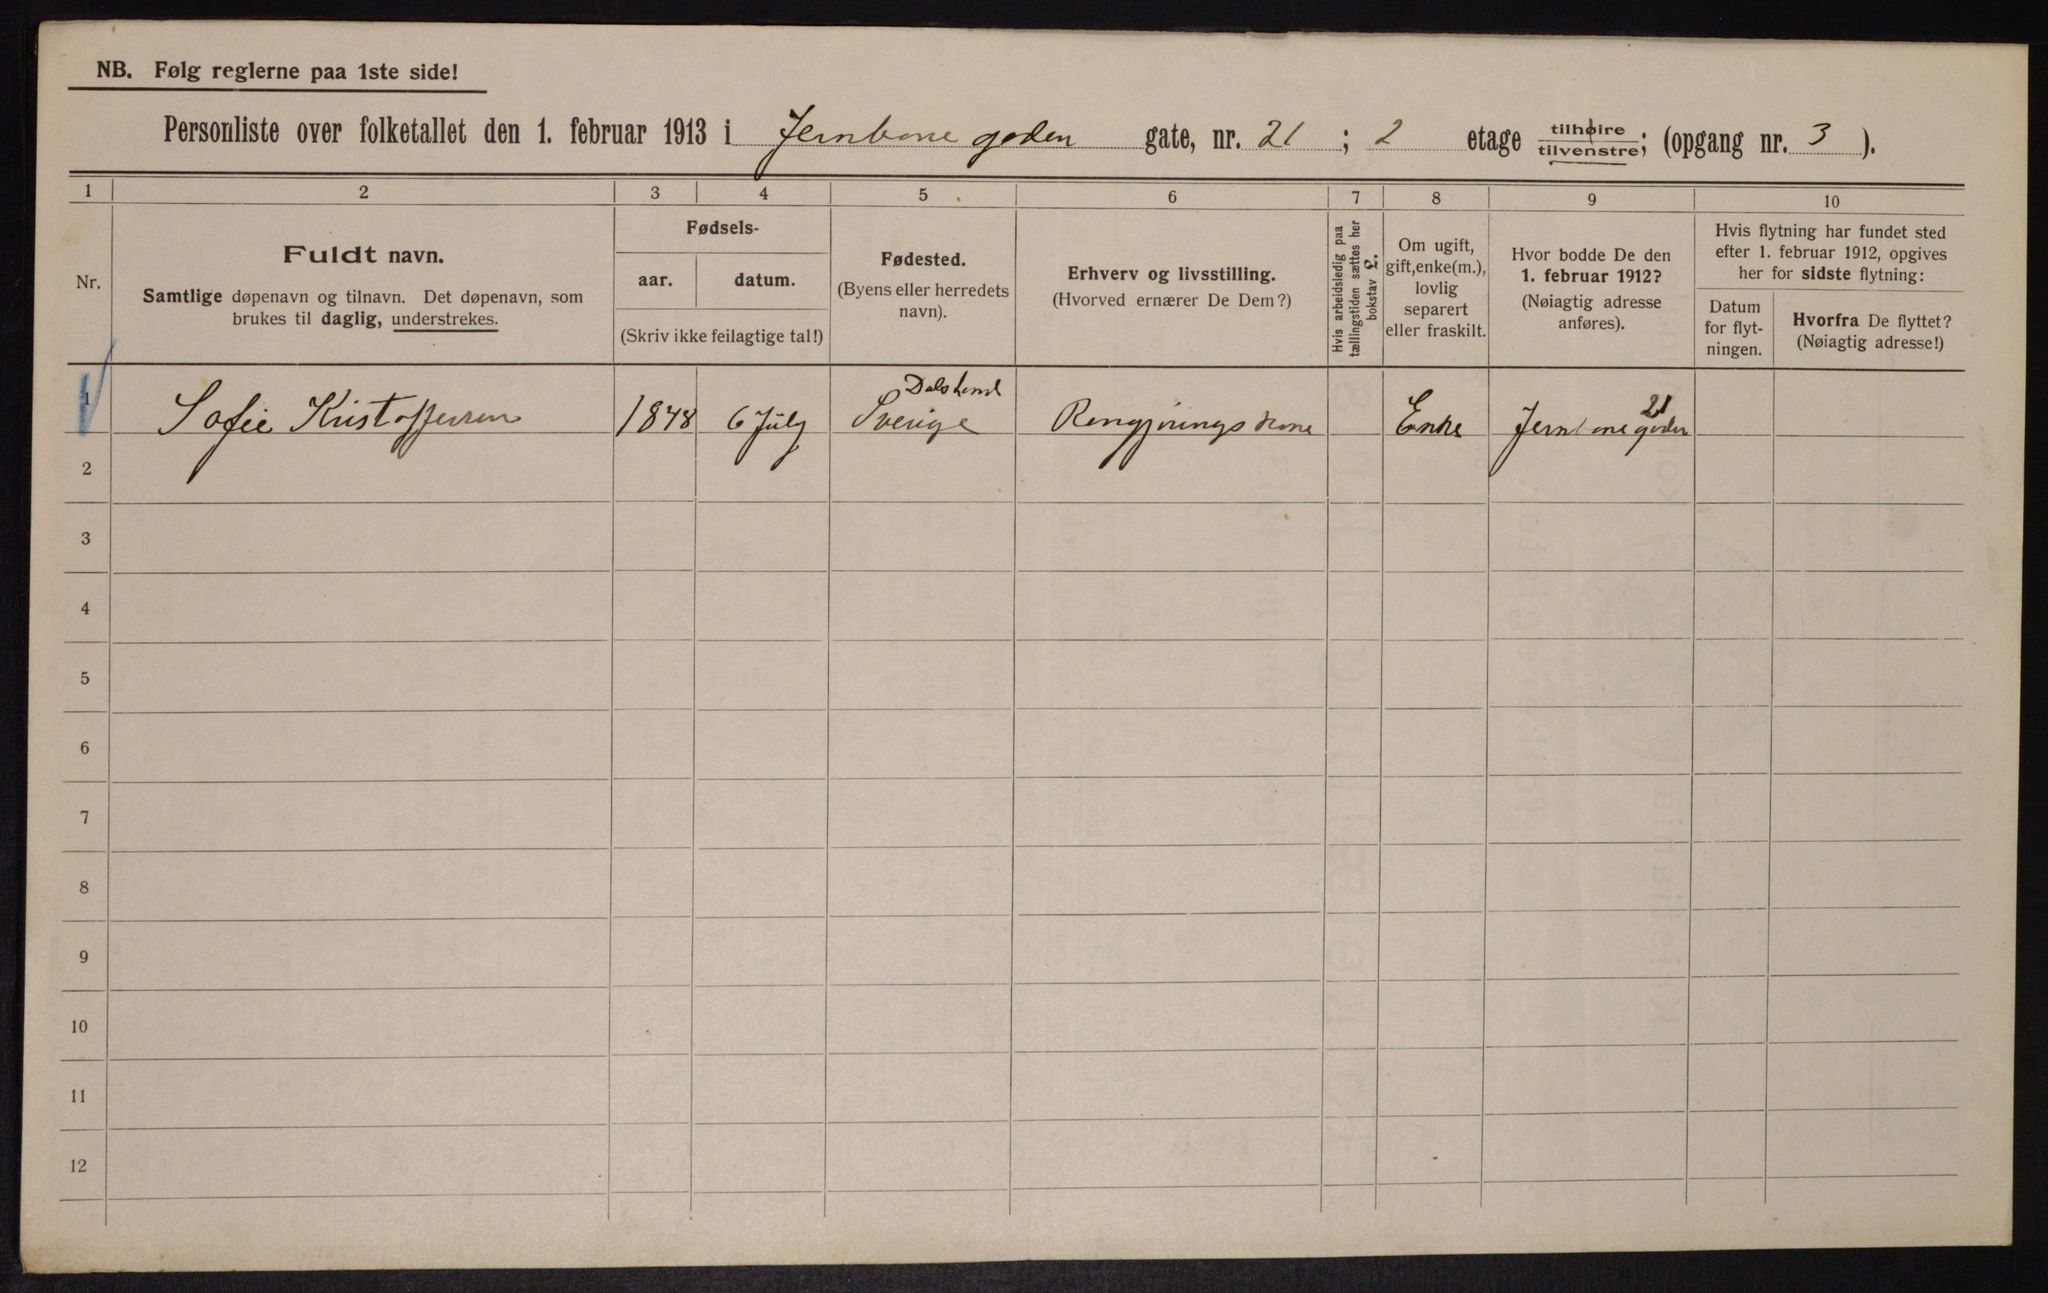 NB. Følg reglerne paa 1ste side!
Personliste over folketallet den 1. februar 1913 i Jernbanegaden gate, nr. 21 ; 2 etage tilhøire tilvenstre; (opgang nr. 3 ).
1 2 3 4 5 6 7 8 9 10
Nr.
Fuldt navn.
Samtlige døpenavn og tilnavn. Det døpenavn, som
brukes til daglig, understrekes.
Fødsels-
aar. datum.
(Skriv ikke feilagtige tal!)
Fødested.
(Byens eller herredets
navn).
Erhverv og livsstilling.
(Hvorved ernærer De Dem?)
Hvis arbeidsledig paa
tællingstiden sættes her
bokstav L.
Om ugift,
gift, enke(m.),
lovlig
separert
eller fraskilt.
Hvor bodde De den
1. februar 1912?
(Nøiagtig adresse
anføres).
Hvis flytning har fundet sted
efter 1. februar 1912, opgives
her for sidste flytning:
Datum
for flyt-
ningen.
Hvorfra De flyttet?
(Nøiagtig adresse!)
Dalsland 21
1 Sofie Kristoffersen 1848 6 July Sverige Rengjøringskone Enke Jernbanegaden
2
3
4
5
6
7
8
9
10
11
12